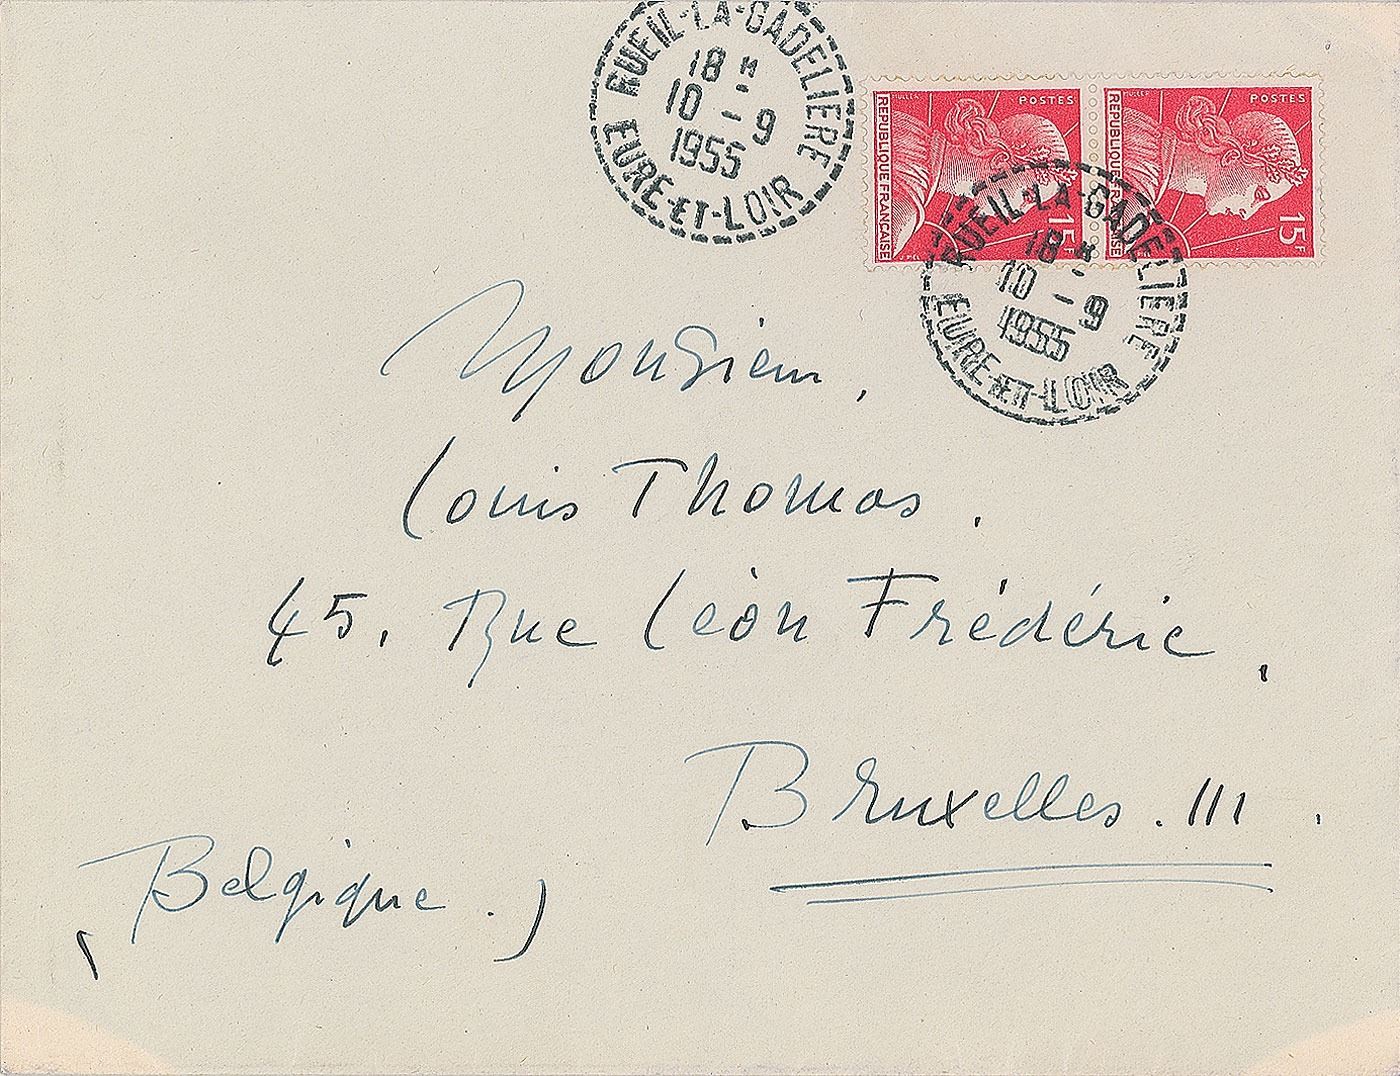 RUEIL-LA-GADELIERE
18 H
10 - 9
1955
EURE-ET-LOIR
MULLER
POSTES
REPUBLIQUE FRANÇAISE
15F
MULLER
POSTES
REPUBLIQUE FRANÇAISE
15F
RUEIL-LA-GADELIERE
18 H
10 - 9
1955
EURE-ET-LOIR
Monsieur,
Louis Thomas.
45, Rue Léon Frédéric,
Bruxelles. III.
(Belgique.)